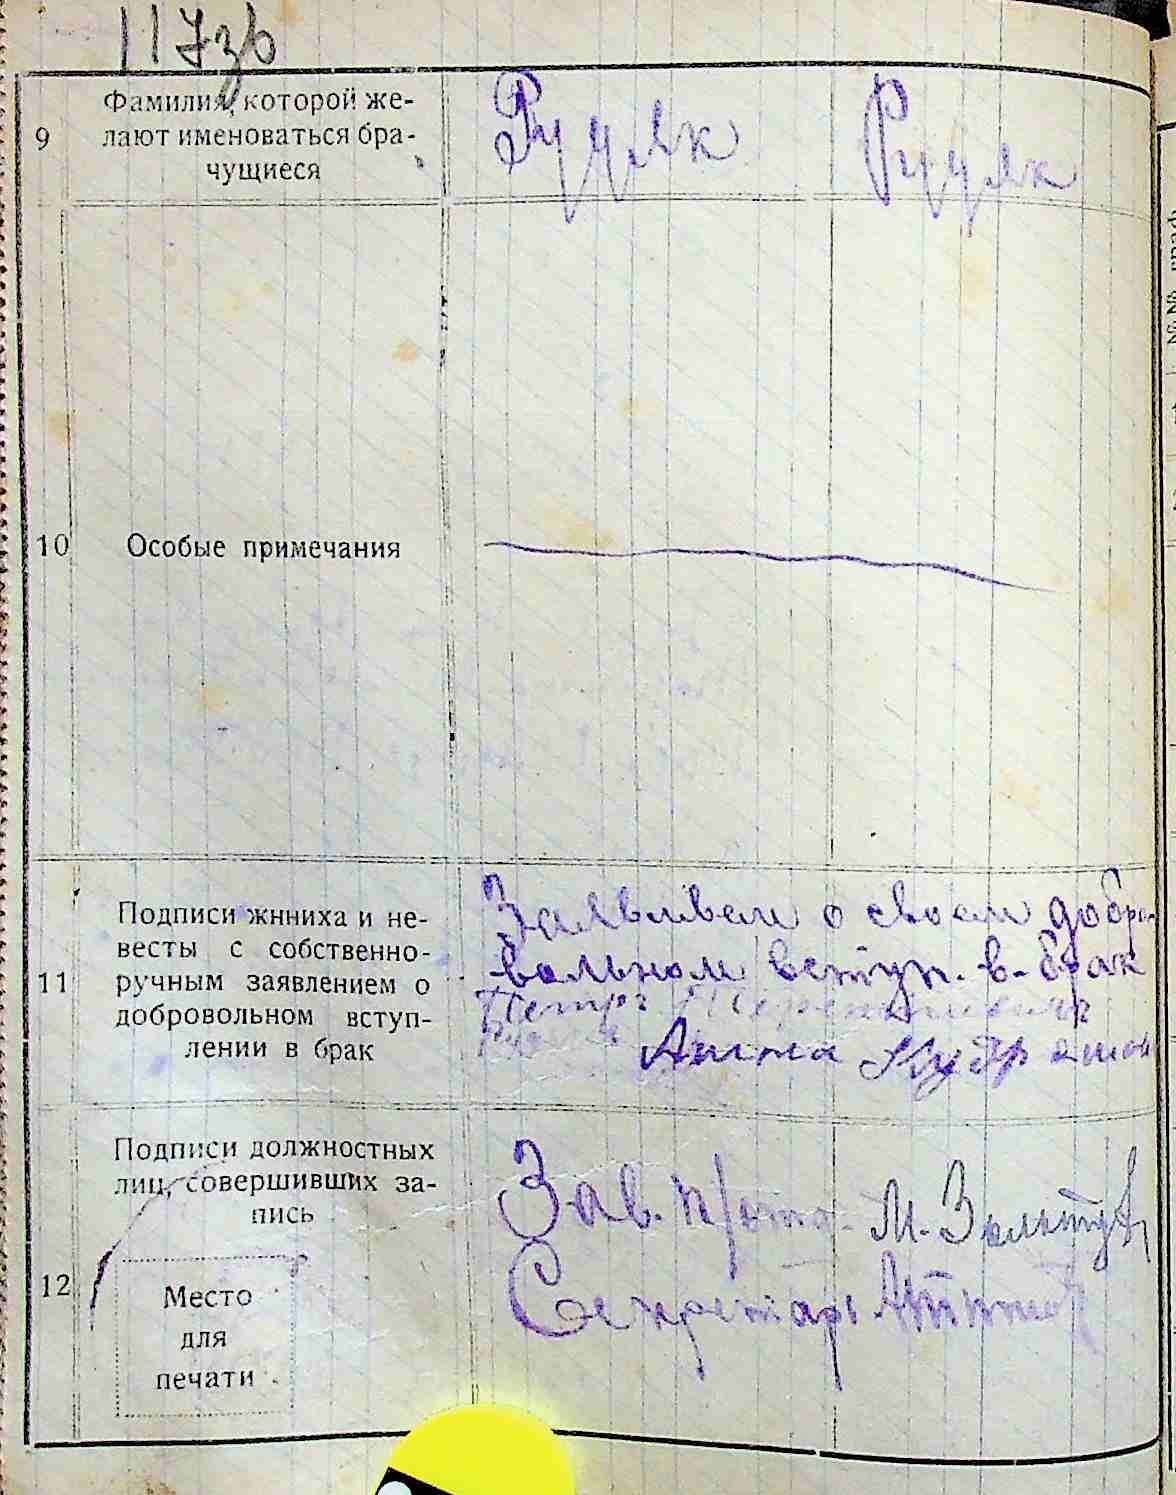 117зв
9
Фамилия, которой же-
лают именоваться бра-
чущиеся
Рудяк Рудяк
10
Особые примечания
11
Подписи жнниха и не-
весты с собственно-
ручным заявлением о
добровольном вступ-
лении в брак
Заявляем о своем добро-
вольном вступ. в-брак
Петр
Рудяк Анна
12
Подписи должностных
лиц, совершивших за-
пись
Зав. п/стол. М.
Секретарь
Место
для
печати